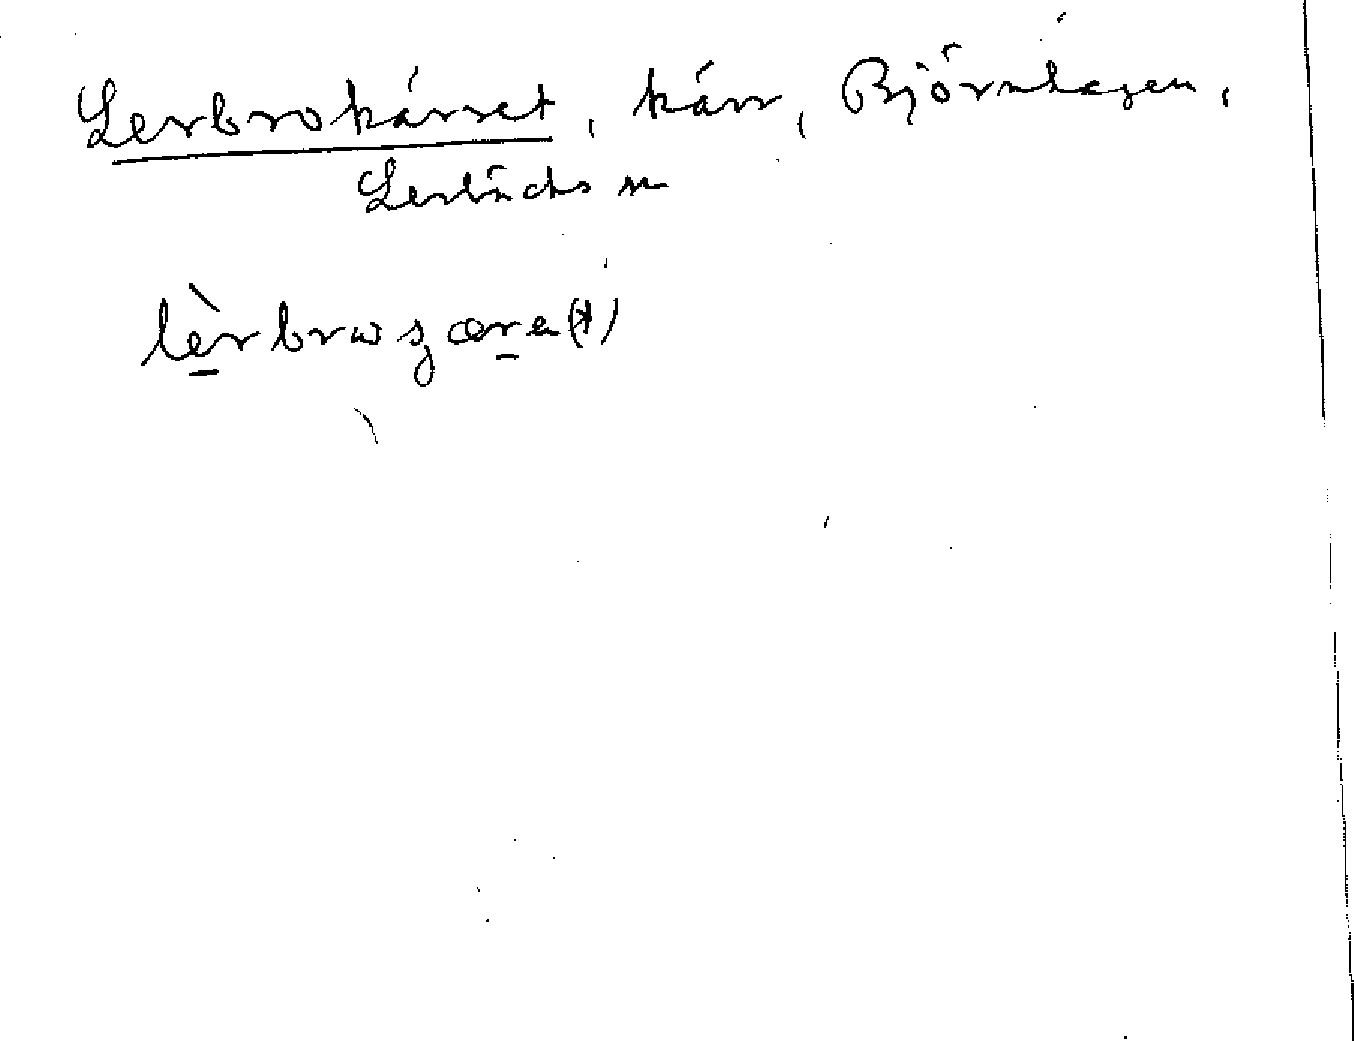 Lerbrokärret, kärr, Björnhagen,
Lerbäcks sn
lèrbrωʂæra(t)